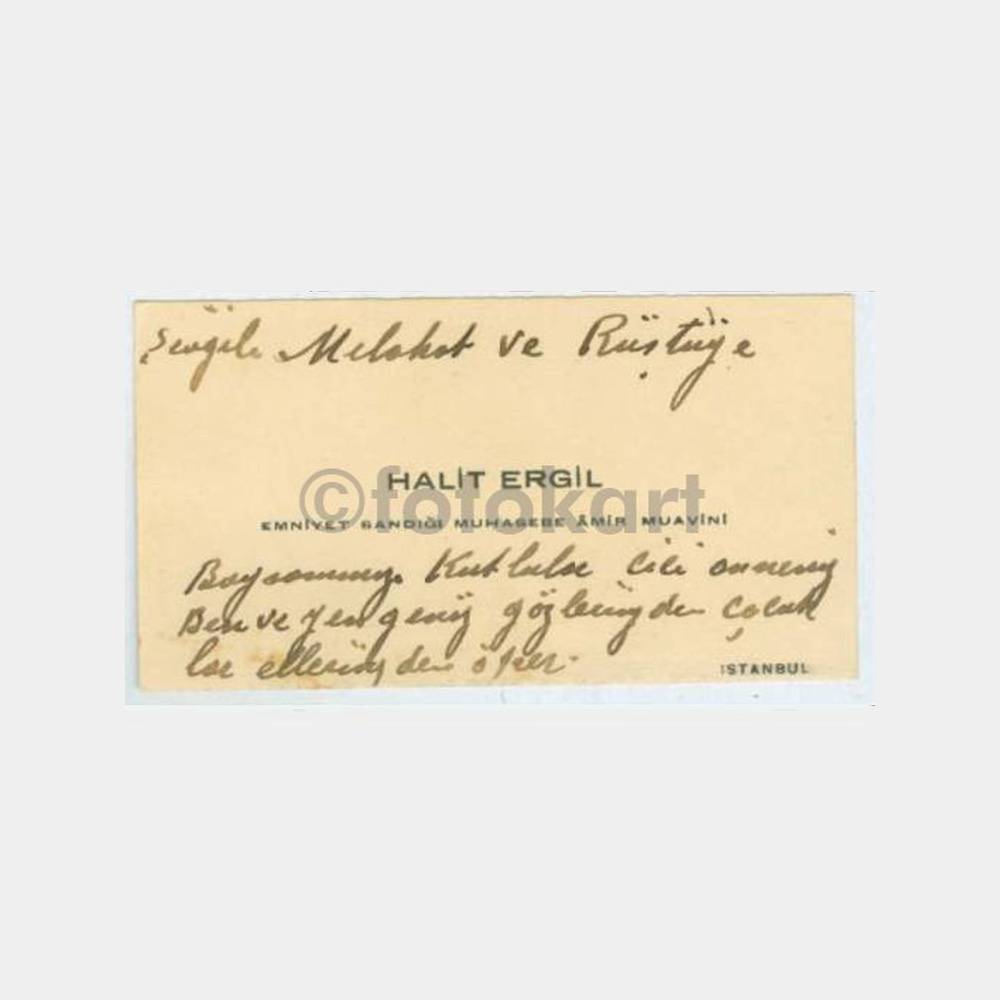 Sevgili Melahat ve Rüştüye
HALİT ERGİL
©fotokart
EMNİYET SANDIĞI MUHASEBE ÂMİR MUAVİNİ
Bayramınızı Kutlular cici anneniz
Ben ve yengeniz gözlerinizden Çocuk
lar ellerinizden öper.
İSTANBUL